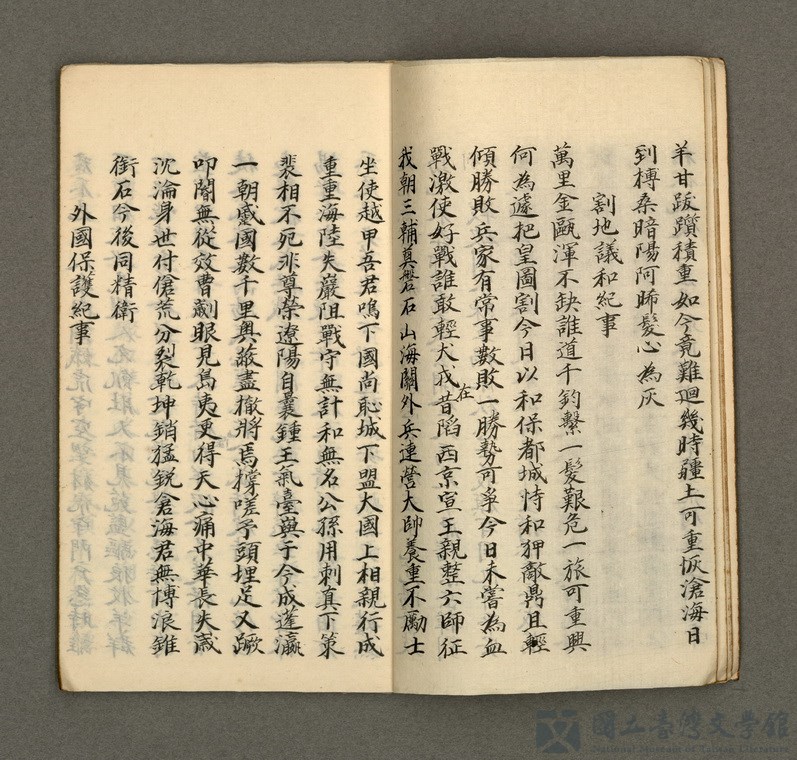 羊甘跋躓積重如今竟難迴幾時疆土可重恢滄海日
到榑桑暗陽阿晞髮心為灰
割地議和紀事
萬里金甌渾不缺誰道千鈞繫一髮艱危一旅可重興
何為遽把皇圖割今日以和保都城恃和狎敵鼎且輕
傾勝敗兵家有常事數敗一勝勢可爭今日未嘗為血
戰激使好戰誰敢輕犬戎昔在陷西京宣王親整六師征
我朝三輔真磐石山海關外兵連營大帥養重不勵士
坐使越甲吾君鳴下國尚恥城下盟大國上相親行成
重重海陸失巖阻戰守無計和無名公孫用刺真下策
裴相不死非尊榮遼陽自曩鍾王氣臺與于今成蓬瀛
一朝蹙國數千里輿㪚盡撤將焉撐嗟予頭埋足又蹶
叩閽無從效曹劌眼見島夷更得天心痛中華長失歲
沈淪身世付傖荒分裂乾坤銷猛銳倉海君無博浪錐
銜石今後同精衛
外國保護紀事
國立臺灣文學館
National Museum of Taiwan Literature